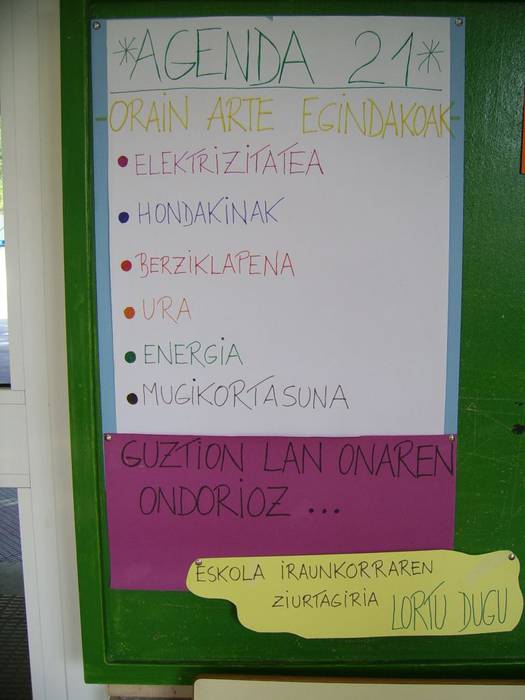 *AGENDA 21*
-ORAIN ARTE EGINDAKOAK-
• ELEKTRIZITATEA
• HONDAKINAK
• BERZIKLAPENA
• URA
• ENERGIA
• MUGIKORTASUNA
GUZTION LAN ONAREN
ONDORIOZ ...
ESKOLA IRAUNKORRAREN
ZIURTAGIRIA LORTU DUGU